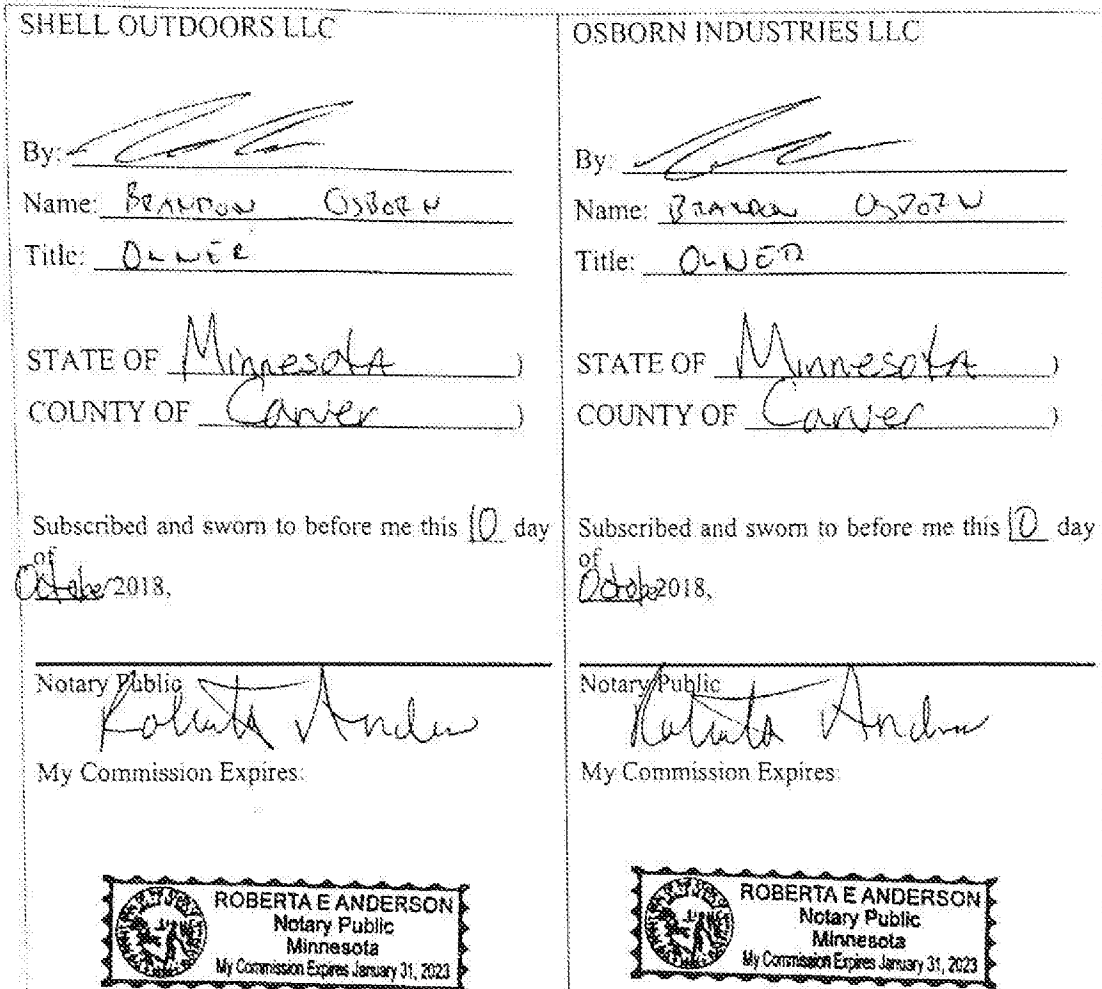 SHELL OUTDOORS LLC
By:
Name: BRANDON OSBORN
Title: OWNER
STATE OF Minnesota )
COUNTY OF Carver )
Subscribed and sworn to before me this 10 day
of
October 2018,
Notary Public
Roberta Anderson
My Commission Expires:
ROBERTA E ANDERSON
Notary Public
Minnesota
My Commission Expires January 31, 2023
OSBORN INDUSTRIES LLC
By:
Name: BRANDON OSBORN
Title: OWNER
STATE OF Minnesota )
COUNTY OF Carver )
Subscribed and sworn to before me this 10 day
of
October 2018,
Notary Public
Roberta Anderson
My Commission Expires:
ROBERTA E ANDERSON
Notary Public
Minnesota
My Commission Expires January 31, 2023